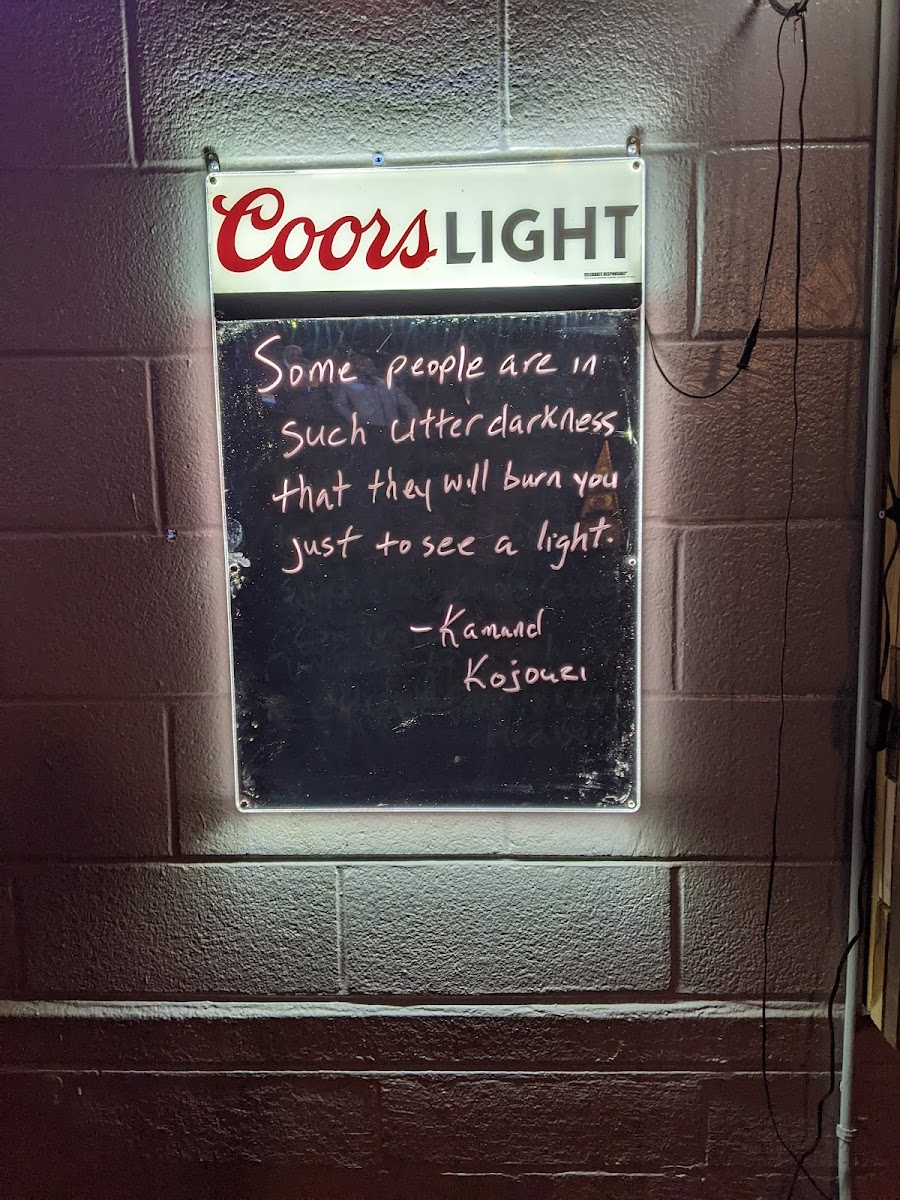 Coors LIGHT
CELEBRATE RESPONSIBLY
Some people are in
such utter darkness
that they will burn you
just to see a light.
-Kamand
Kojouri